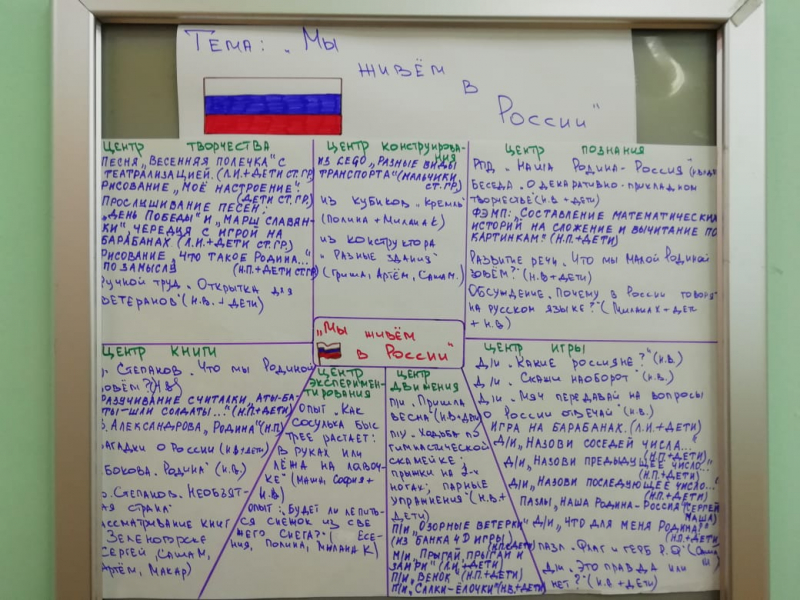 Тема: „Мы
живём
в
России“
Центр творчества
Песня „Весенняя полечка“ с
театрализацией. (Л.И.+дети ст.гр)
Рисование „Моё настроение“.
(дети ст.гр)
Прослушивание песен:
„День Победы“ и „Марш славян-
ки“, чередуя с игрой на
барабанах (Л.И.+дети ст.гр)
Рисование „Что такое Родина...“
по замыслу (Н.П.+дети ст.гр)
Ручной труд „Открытка для
ветеранов“ (Н.В.+дети)
Центр конструирова-
ния
из LEGO „Разные виды
транспорта“ (мальчики
ст.гр)
из кубиков „Кремль“
(Полина + Милана К)
из конструктора
„Разные здания“
(Гриша, Артём, Саша М.)
Центр познания
РПД „Наша Родина-Россия“
Беседа „О декоративно-прикладном
творчестве“ (Н.В+дети)
ФЭМП: „Составление математических
историй на сложение и вычитание по
картинкам“ (Н.П.+дети)
Развитие речи „Что мы малой Родиной
зовём?“ (Н.В+дети)
Обсуждение „Почему в России говорят
на русском языке?“ (Милана К-
+ Н.В)
„Мы живём
в России“
Центр книги
Степанов „Что мы Родиной
зовём?“ (Н.В)
Разучивание считалки „Аты-ба-
ты-шли солдаты...“ (Н.П+дети)
З. Александрова „Родина“ (Н.П)
Загадки о России (Н.В+дети)
Бокова „Родина“ (Н.В.)
Степанов „Необъят-
ая страна“
Рассматривание книг
Зеленогорске
Сергей, Саша М,
Артём, Макар)
Центр
эксперимен-
тирования
Опыт „Как
сосулька быс
трее растает:
в руках или
лёжа на лавоч-
ке“ (Маша, София+
Н.В)
Опыт „Будет ли лепить-
ся снежок из све
жего снега?“ (Есе-
ния, Полина, Милана К.)
Центр
движения
П/И „Пришла
весна“ (Н.В+дети)
„Ходьба по
гимнастической
скамейке;
прыжки на 2-х
ногах; парные
упражнения“ (Н.В+
дети)
П/И „Озорные ветерки“
(из банка 4D игры)
(Н.П.+дети)
М/И „Прыгай, прыгай и
замри“ (Л.И.+дети)
П/И „Венок“ (Н.П+дети)
П/И „Салки-ёлочки“ (Н.В+дети)
Центр игры
Д/И „Какие россияне?“ (Н.В.)
Д/И „Скажи наоборот“ (Н.В.)
Д/И „Мяч передавай на вопросы
о России отвечай“ (Н.В.)
Игра на барабанах. (Л.И.+дети)
Д/И „Назови соседей числа...“
(Н.П+дети)
Д/И „Назови предыдущее число...“
(Н.П.+дети)
Д/И „Назови последующее число...“
(Н.П.+дети)
Пазлы „Наша Родина-Россия“ (Сергей
Маша)
Д/И „Что для меня Родина?“
(Н.П.+дети)
Пазл „Флаг и герб Р.Ф“
Д/И „Это правда или
нет?“ (Н.В+дети)